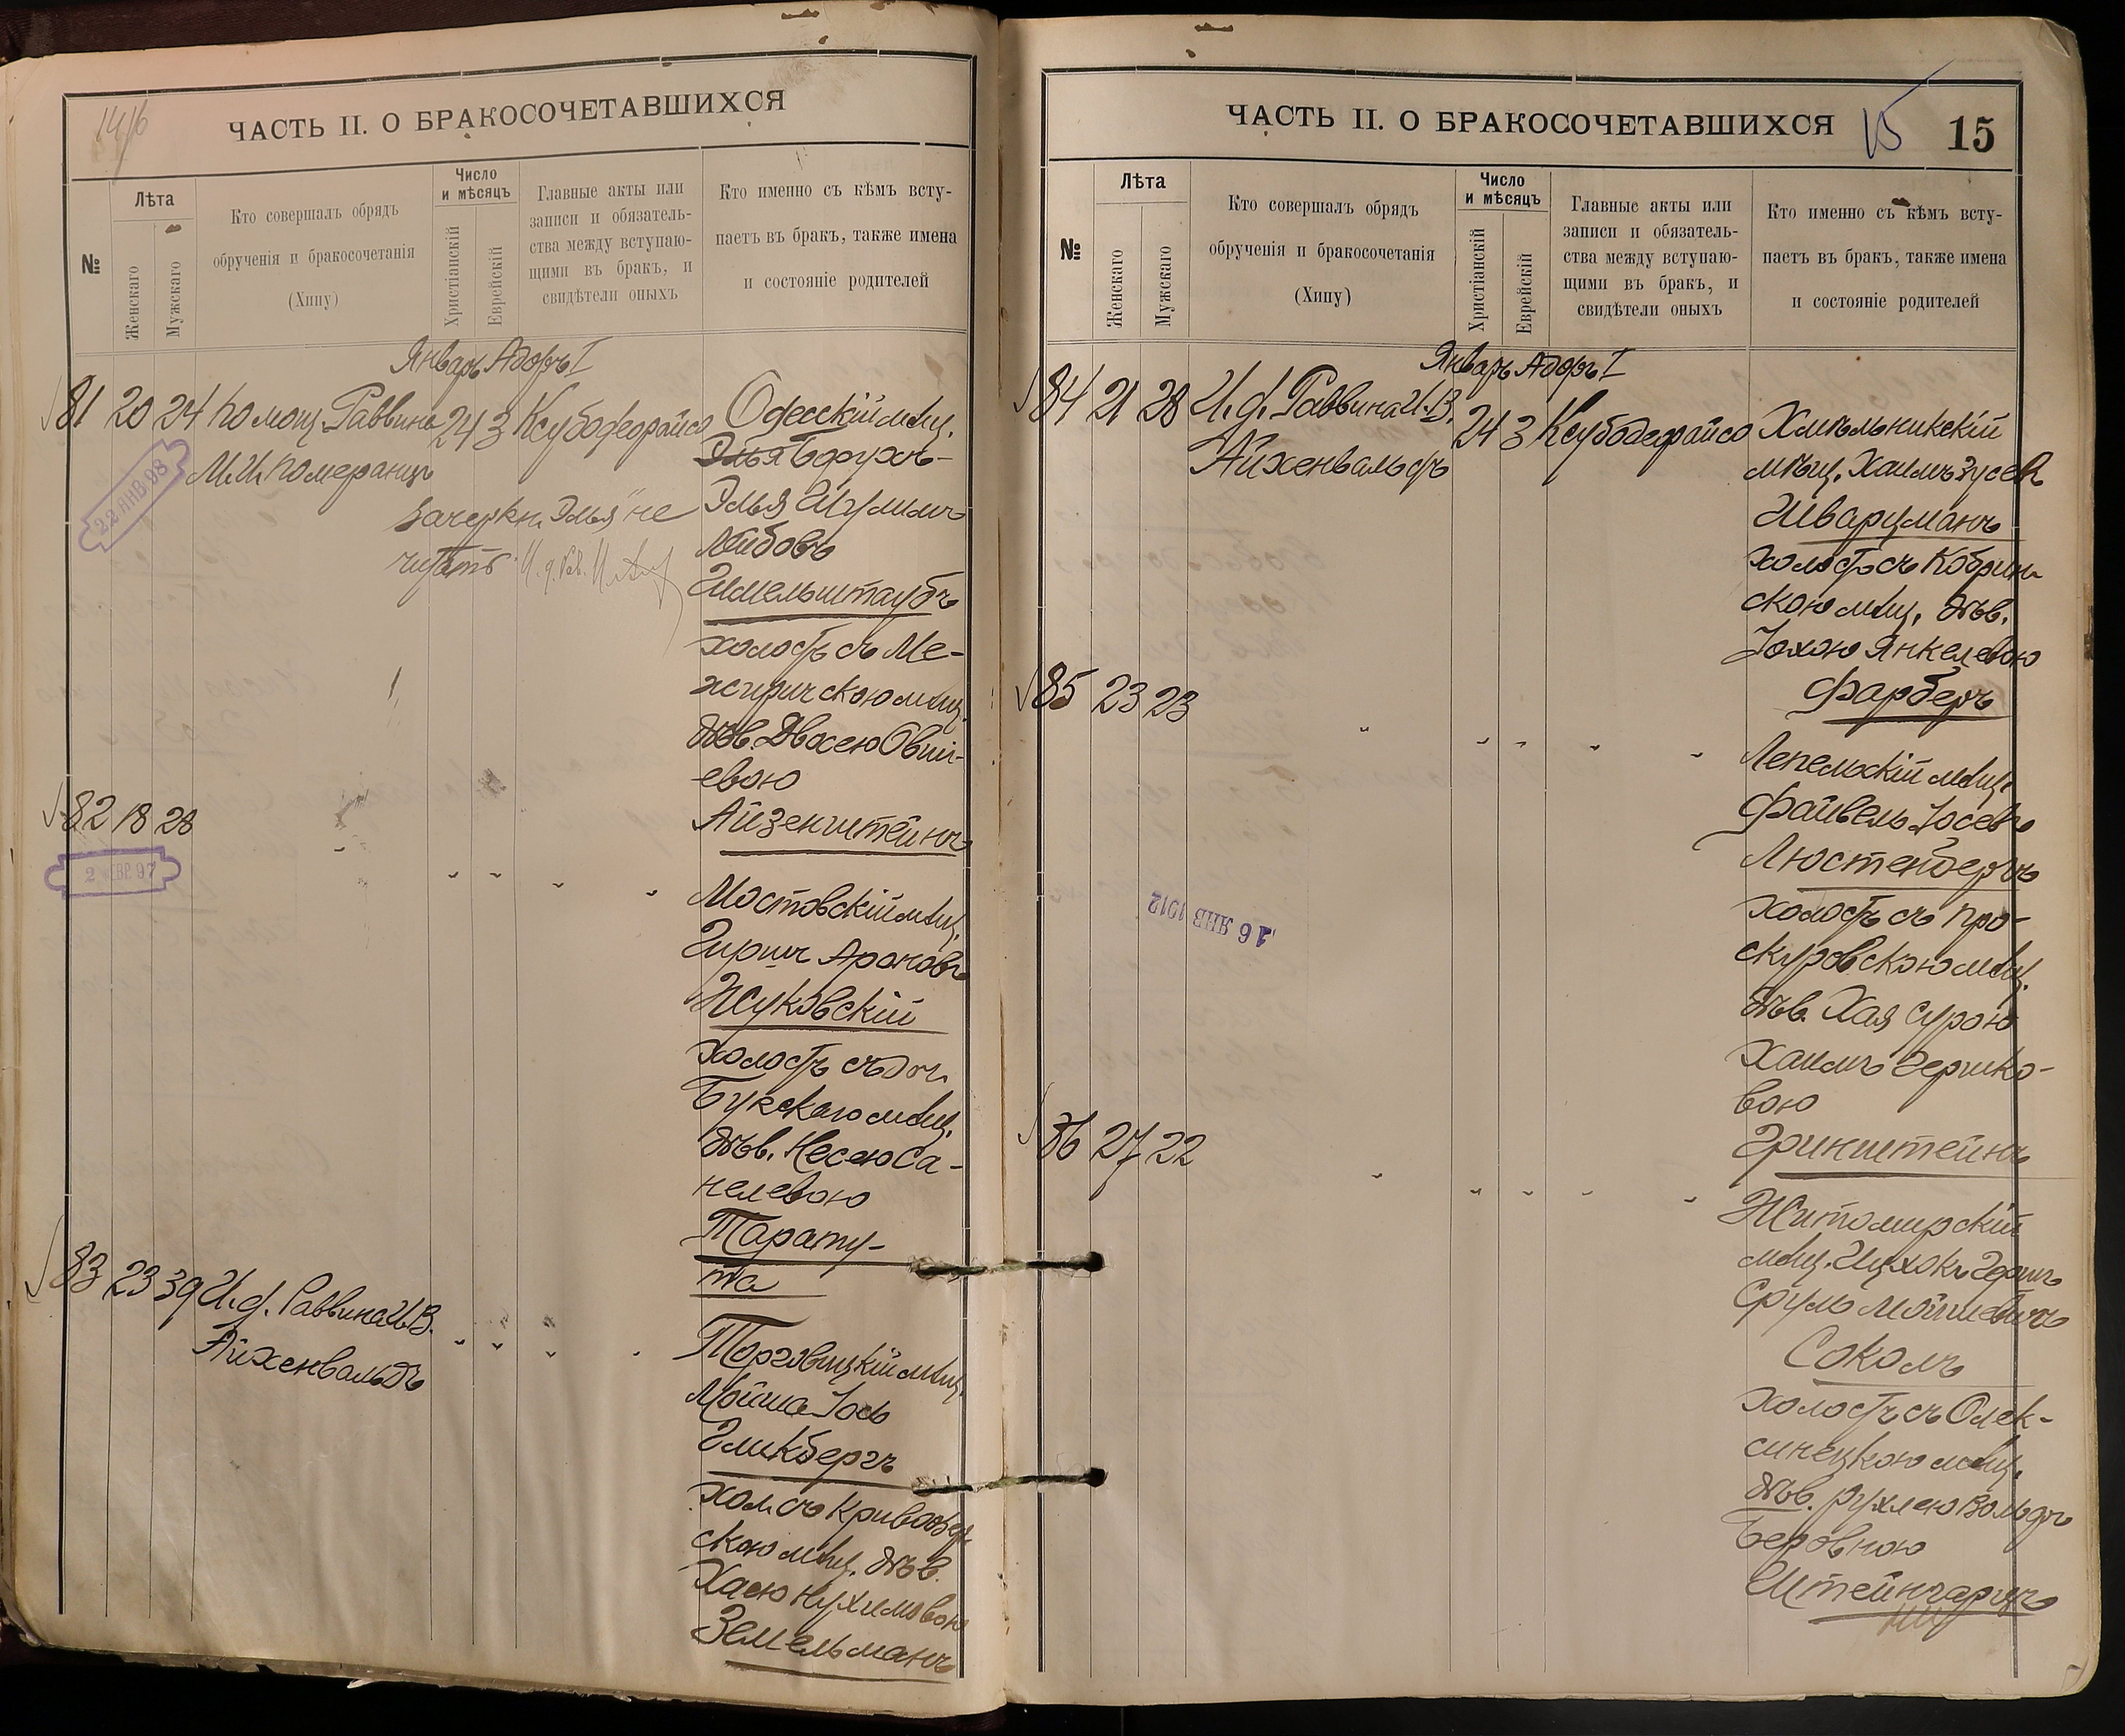 14/16
ЧАСТЬ II. О БРАКОСОЧЕТАВШИХСЯ
№
Лѣта
Женскаго
Мужскаго
Кто совершалъ обрядъ
обрученія и бракосочетанія
(Хипу)
Число
и мѣсяцъ
Христіанскій
Еврейскій
Главные акты или
записи и обязатель-
ства между вступаю-
щими въ бракъ, и
свидѣтели оныхъ
Кто именно съ кѣмъ всту-
паетъ въ бракъ, также имена
и состояніе родителей
Январь Адоръ I
81 20 24 Помощ. Раввина 24 3 Ксубодефрайсо
М.И. Померанцъ
22 ЯНВ 98
Зачеркн. Элья не
читать
Одесскій мѣщ.
Элья Борухъ-
Элья Шулимъ
Лейбовъ
Шмельштаубъ
холостъ съ Ме-
жиричскою мѣщ.
дѣв. Двосею Овши-
евою
Айзенштейнъ
82 18 28 " " " " "
Мостовскій мѣщ.
Гиршъ Ароновъ
Жуковскій
холостъ съ доч.
Букскаго мѣщ.
дѣв. Несею Са-
нелевою
Тарату-
та
83 23 39 И. д. Раввина И.В.
Айхенвальдъ " " " "
Торговицкій мѣщ.
Мойша Іось
Гликбергъ
хол. съ Кривоозер
скою мѣщ. дѣв.
Хаею Нухимовою
Земельманъ
ЧАСТЬ II. О БРАКОСОЧЕТАВШИХСЯ
15
15
№
Лѣта
Женскаго
Мужскаго
Кто совершалъ обрядъ
обрученія и бракосочетанія
(Хипу)
Число
и мѣсяцъ
Христіанскій
Еврейскій
Главные акты или
записи и обязатель-
ства между вступаю-
щими въ бракъ, и
свидѣтели оныхъ
Кто именно съ кѣмъ всту-
паетъ въ бракъ, также имена
и состояніе родителей
Январь Адоръ I
84 21 28 И. д. Раввина И.В. 24 3 Ксубодефрайсо
Айхенвальдъ
Хмѣльникскій
мѣщ. Хаимъ Зусевъ
Шварцманъ
холостъ съ Кобрин-
скою мѣщ. дѣв.
Іохою Янкелевою
Фарберъ
85 23 23 " " " " "
Лепельскій мѣщ.
Файвель Іосевъ
Люстенбергъ
холостъ съ Про-
скуровскою мѣщ.
дѣв. Хая Сурою
Хаимъ Гершко-
вою
Гринштейнъ
16 ЯНВ 1912
86 27 22 " " " " "
Житомирскій
мѣщ. Ицхокъ Гершъ
Сруль Мойшевичъ
Соколъ
холостъ съ Олек-
синецкою мѣщ.
дѣв. Рухлею Вольфъ
Беровною
Штейнгарцъ